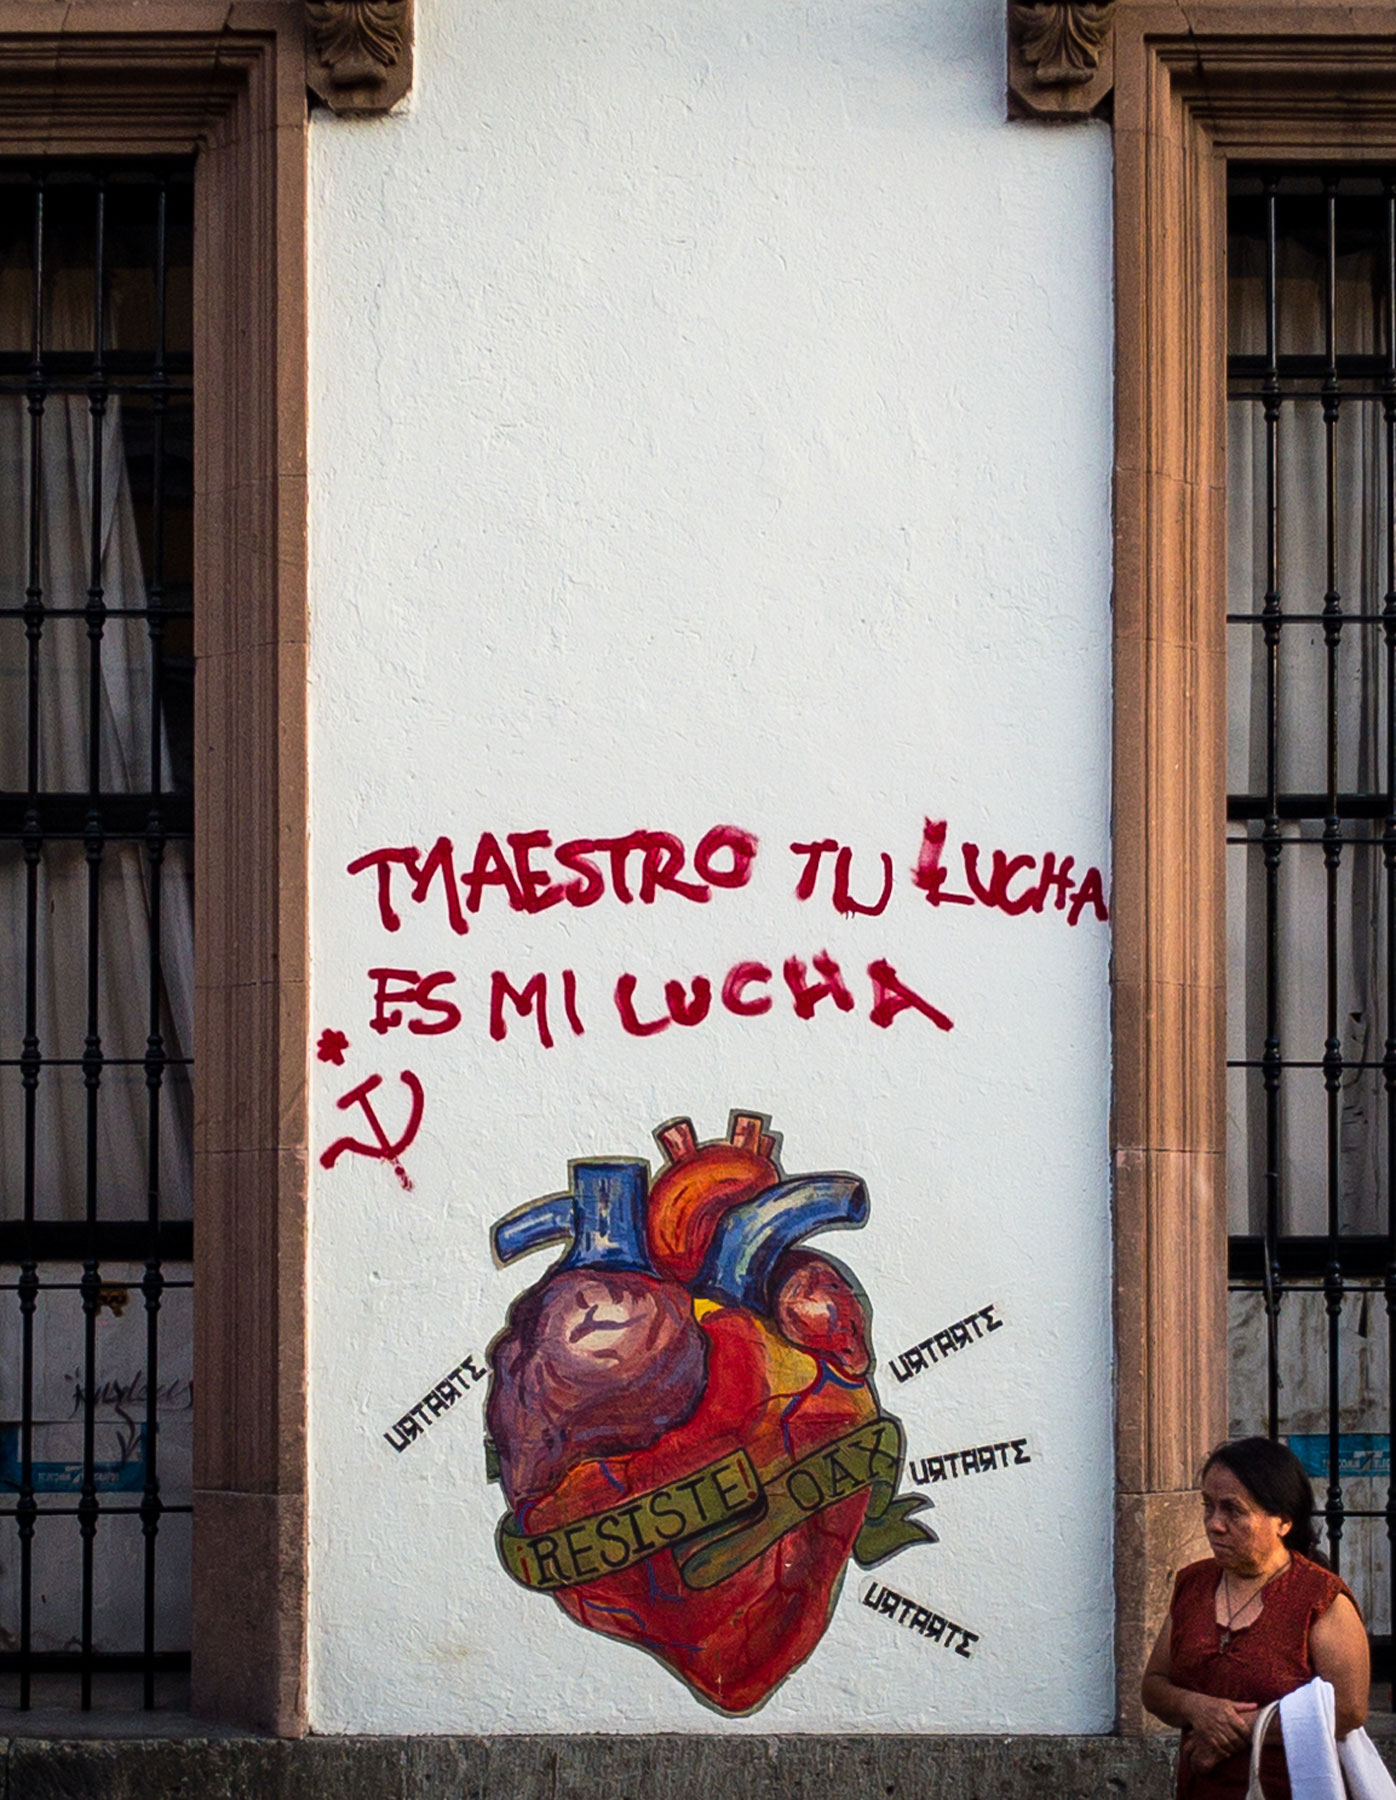 MAESTRO TU LUCHA
ES MI LUCHA
URTARTE
URTARTE
URTARTE
¡RESISTE! OAX
URTARTE